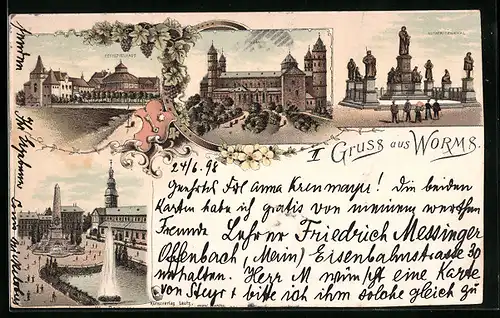 FESTSPIELHAUS
LUTHERDENKMAL
II Gruss aus Worms.
24/6. 98
Geehrtes Frl Anna Krenmayr! Die beiden
Karten habe ich gratis von meinem werthen
Freunde Lehrer Friedrich Messinger
Offenbach, (Main) Eisenbahnstrasse 30
erhalten. Herr M wünscht eine Karte
von Steyr & bitte ich ihm solche gleich zu